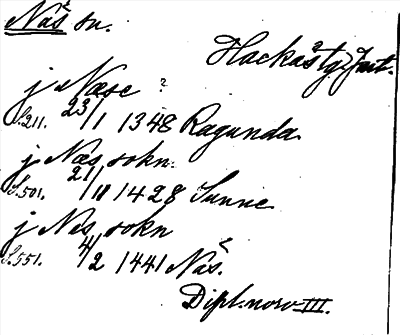 Näs sn.
Hackås? tg. Jmt.
j Næse ?
S. 211. 23/1 1348 Ragunda
j Næs sokn.
S. 501. 21/11 1428 Sunne
j Nes sokn
S. 551. 4/2 1441 Näs.
Dipl. norv. III.